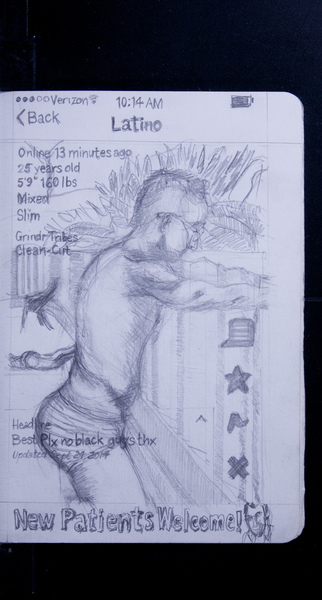 Verizon 10:14 AM
Back
Latino
Online 13 minutes ago
25 years old
5'9" 160 lbs
Mixed
Slim
Grindr Tribes
Clean-Cut
Headline
Best Plx no black guys thx
Updated Sept 24 2014
New Patients Welcome!